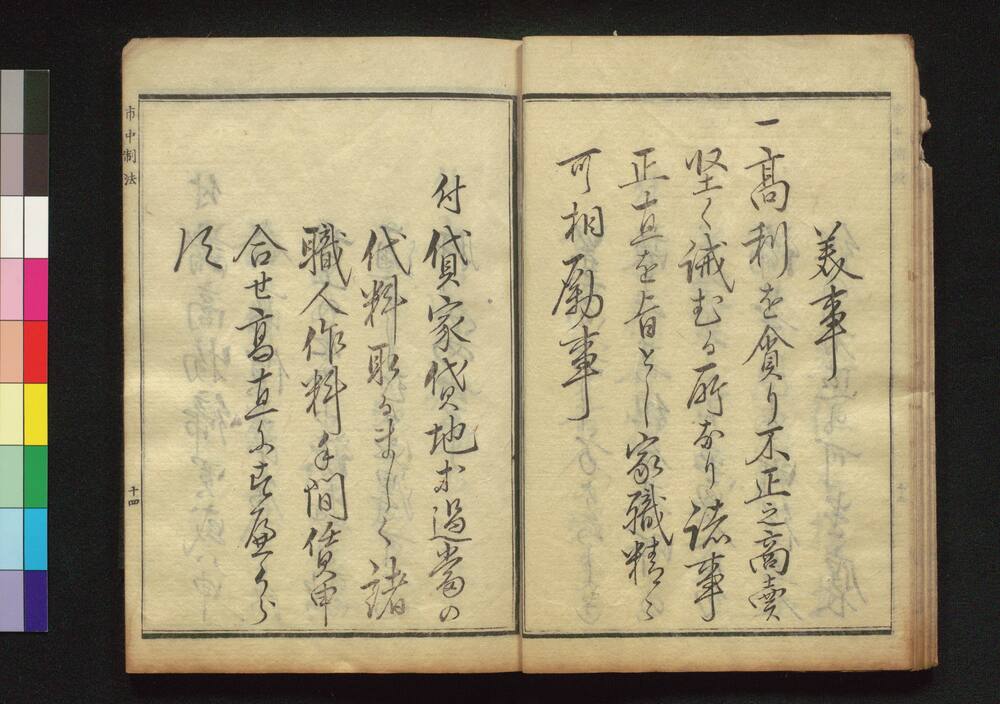 美事
一高利を貪り不正之商賣
堅く誡むる所なり諸事
正直を旨とし家職精々
可相励事
付貸家貸地等過當の
代料取るましく諸
職人作料手間賃申
合せ高直にすへからす
市中制法
十四